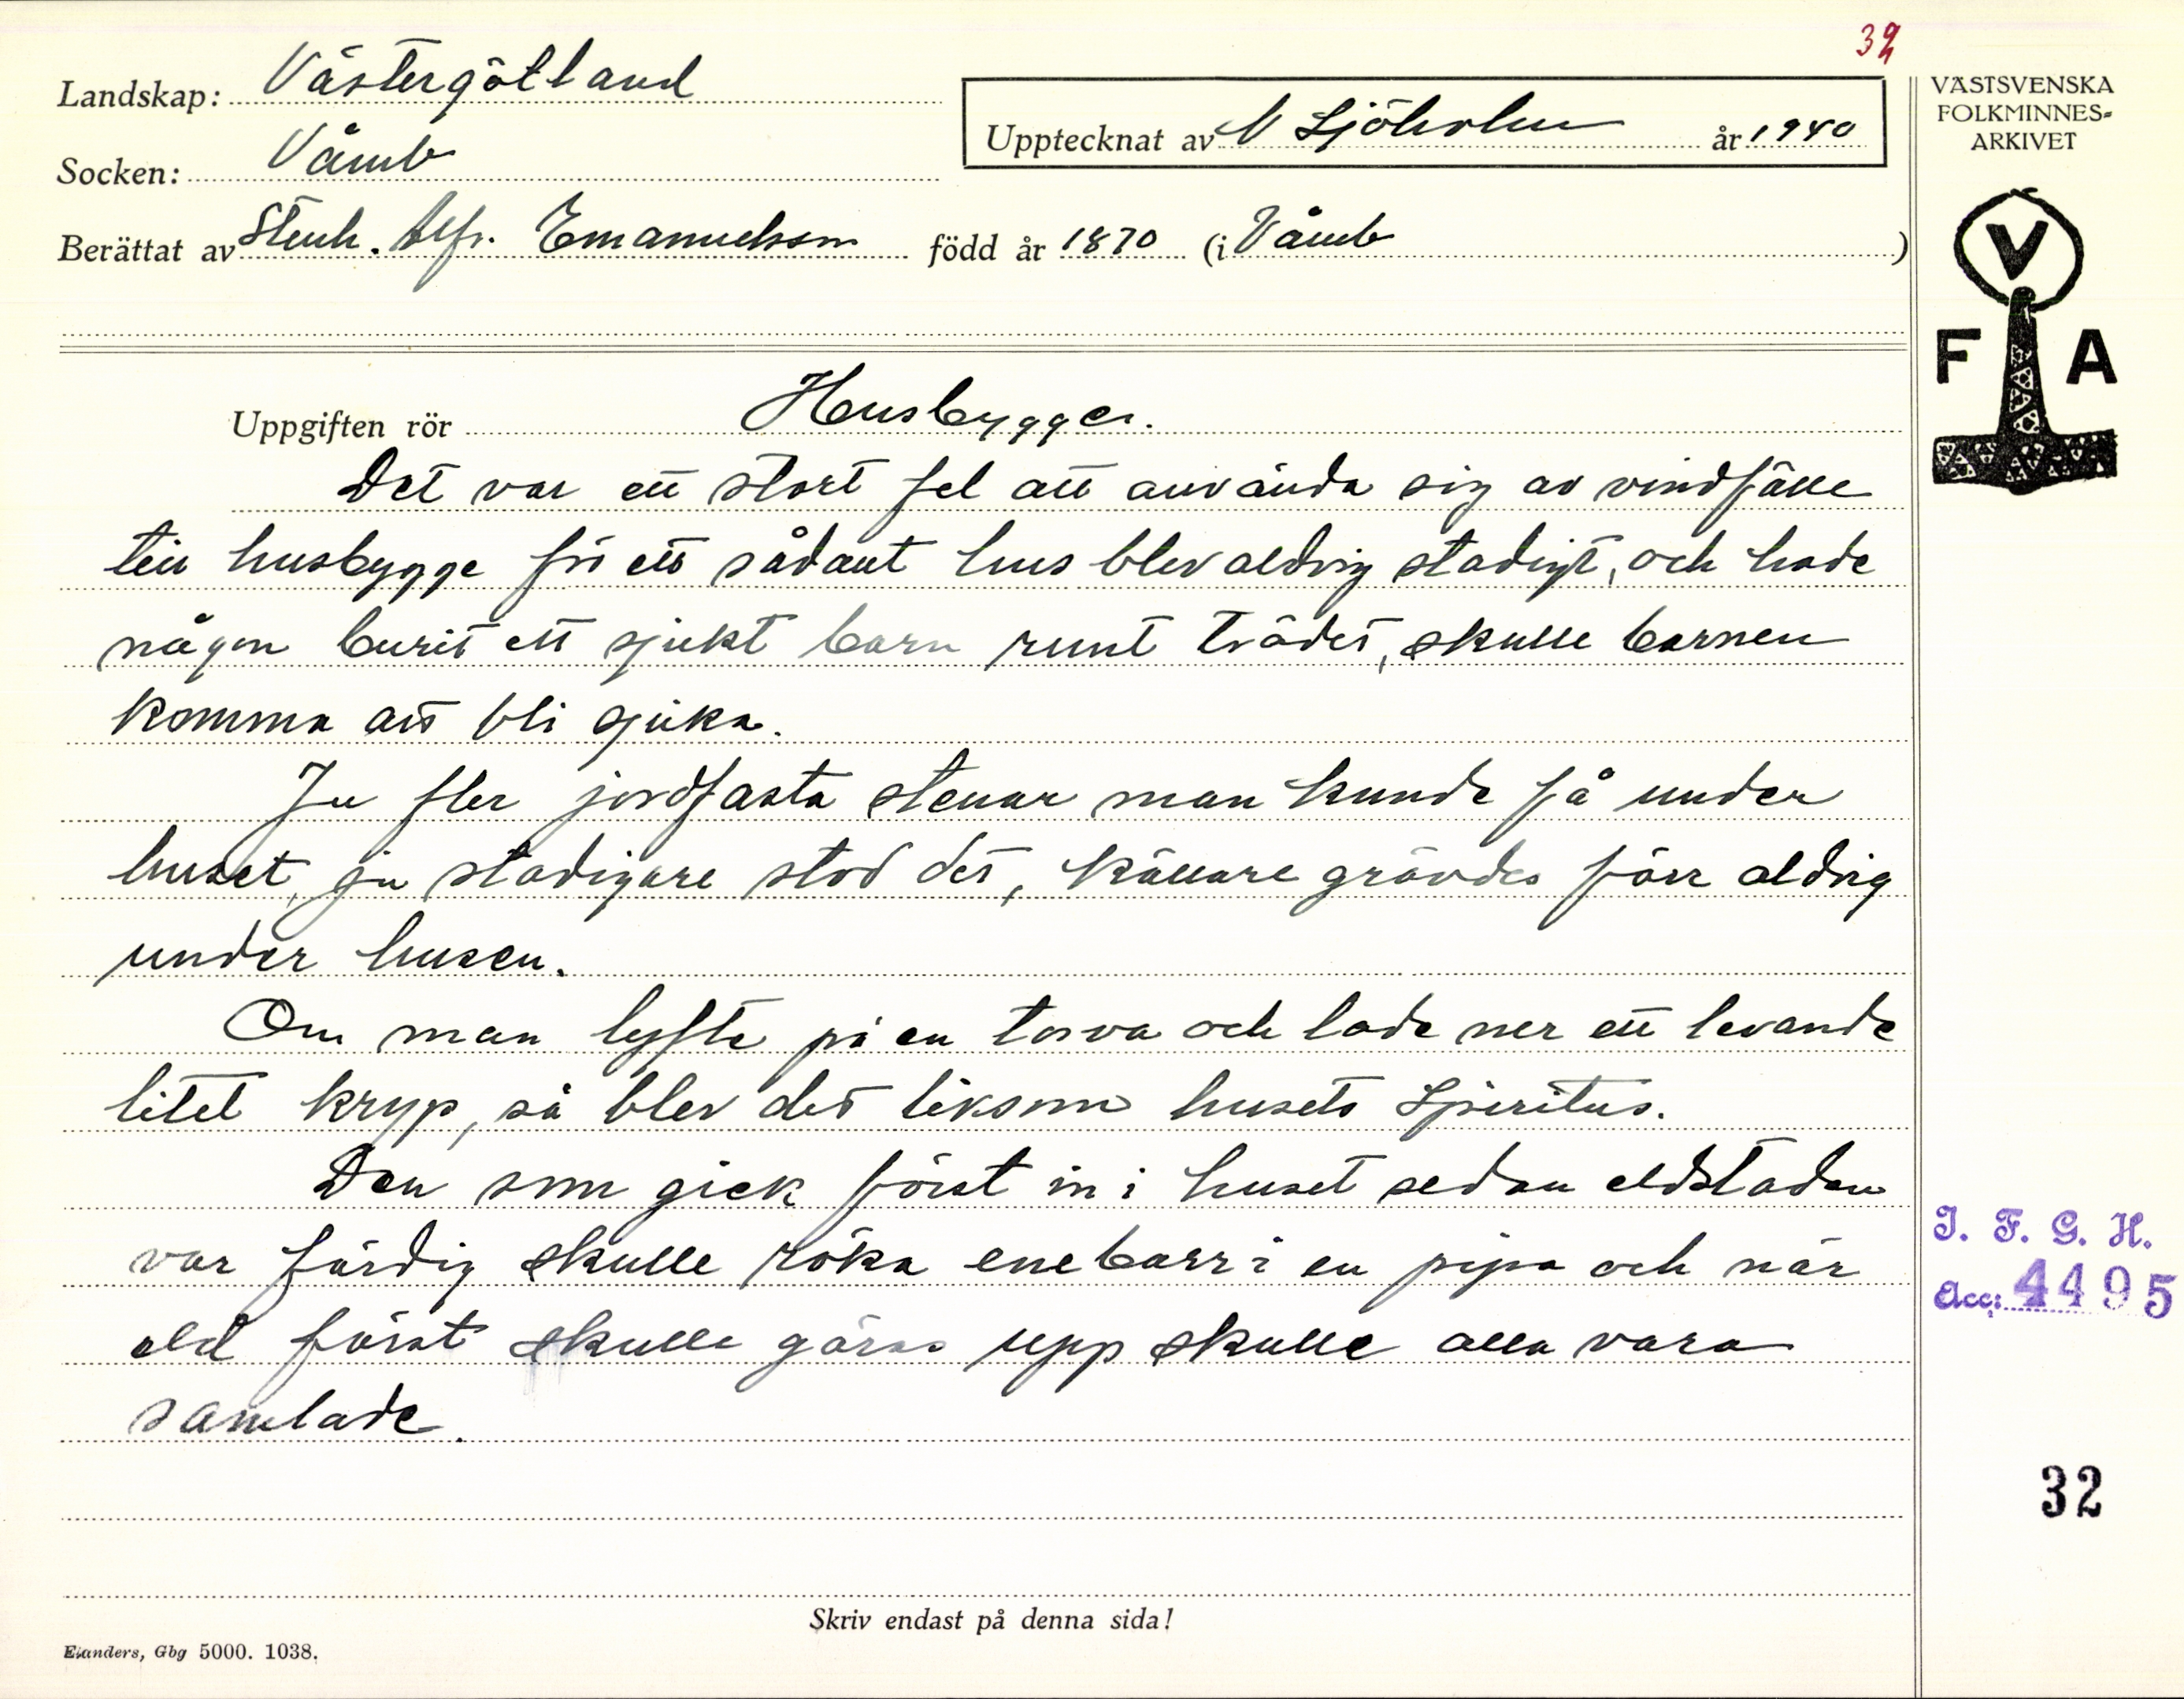 32
Landskap: Västergötland
Socken: Våmb
Upptecknat av N Sjöholm år 1940
Berättat av Stenh. Alfr. Emanuelsson född år 1870 (i Våmb )
VÄSTSVENSKA
FOLKMINNES-
ARKIVET
V
F A
Uppgiften rör Husbygge.
Det var ett stort fel att använda sig av vindfälle
till husbygge för ett sådant hus blev aldrig stadigt, och hade
någon burit ett sjukt barn runt trädet, skulle barnen
komma att bli sjuka.
Ju fler jordfasta stenar man kunde få under
huset, ju stadigare stod det, källare grävdes förr aldrig
under husen.
Om man lyfte på en torva och lade ner ett levande
litet kryp, så blev det liksom husets Spiritus.
Den som gick först in i huset sedan eldstaden
var färdig skulle röka enebarr i en pipa och när
eld först skulle göras upp skulle alla vara
samlade.
I. F. G. H.
Acc: 4495
32
Skriv endast på denna sida!
Elanders, Gbg 5000. 1038.